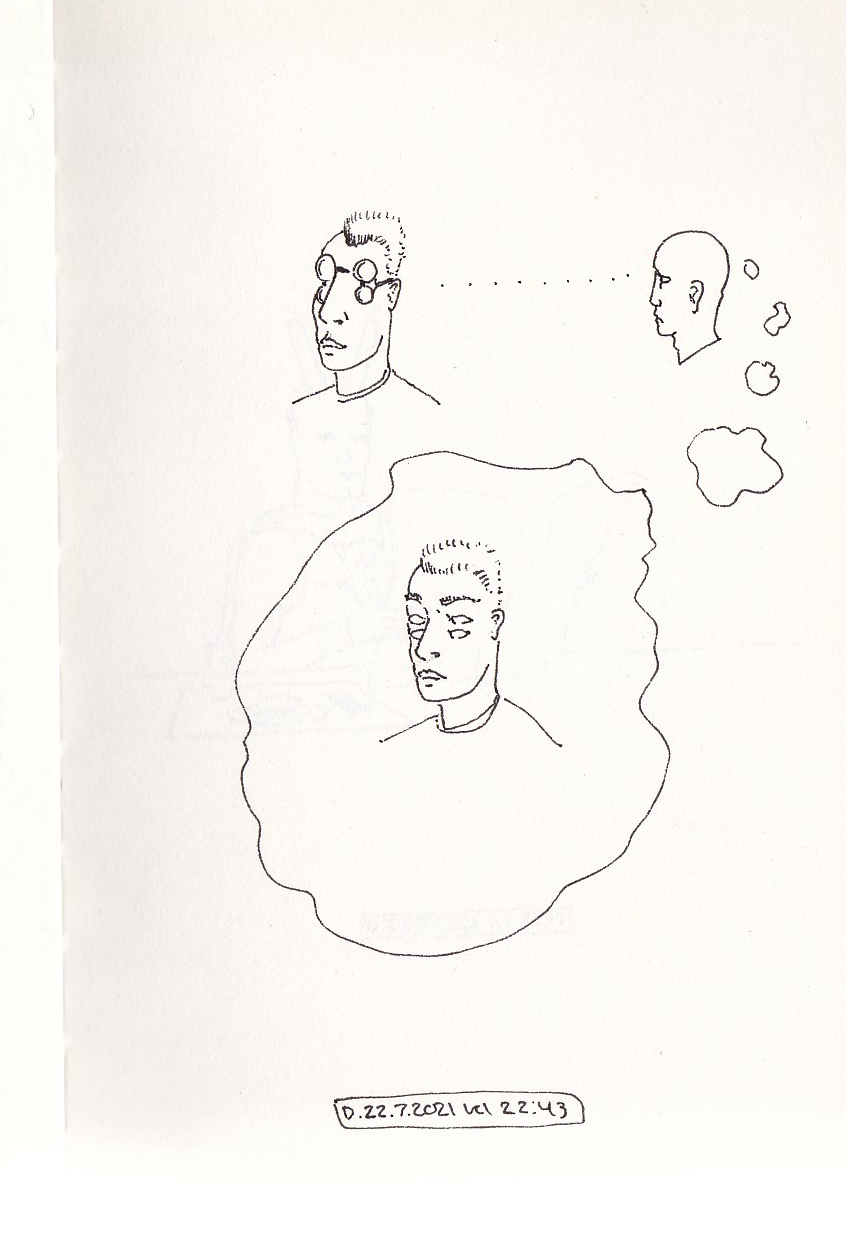 D.22.7.2021 kl 22:43